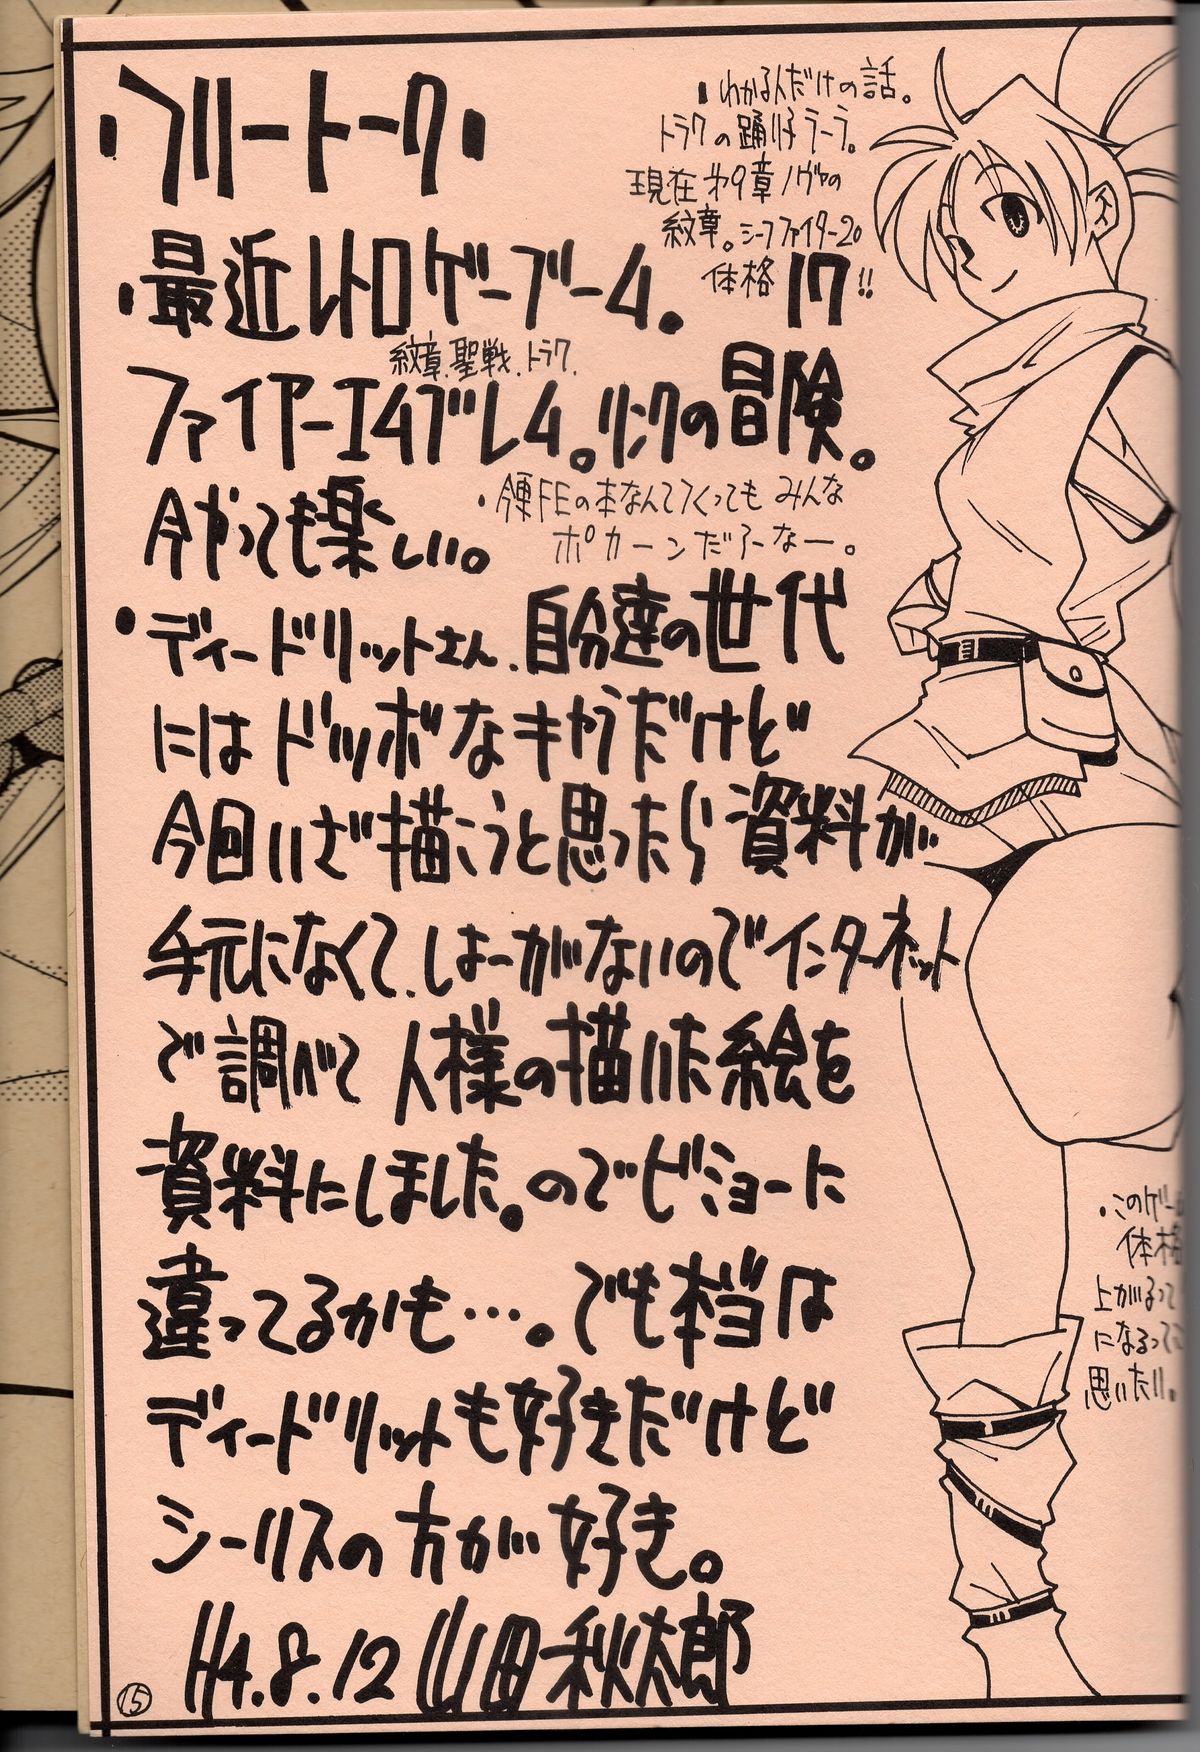 ・フリートーク・
・わかる人だけの話。
トラクの踊り子ラーラ。
現在 才9章ノヴァの
紋章。シーフファイター20
体格 17!!
・最近レトロゲーブーム。
紋章.聖戦.トラク.
ファイヤーエムブレム。リンクの冒険。
今やっても楽しい。
・今更FEの本なんてつくっても みんな
ポカーンだろーなー。
・ディードリットさん.自分達の世代
にはドッボなキャラだけど
今回いざ描こうと思ったら資料が
手元になくて.しょーがないのでインターネット
で調べて 人様の描いた絵を
資料にしました。のでビミョーに
違ってるかも…。でも本当は
ディードリットも好きだけど
シーリスの方が好き。
・このゲーム
体格
上がるって
になるって
思いたい。
H4.8.12 山田秋太郎
15